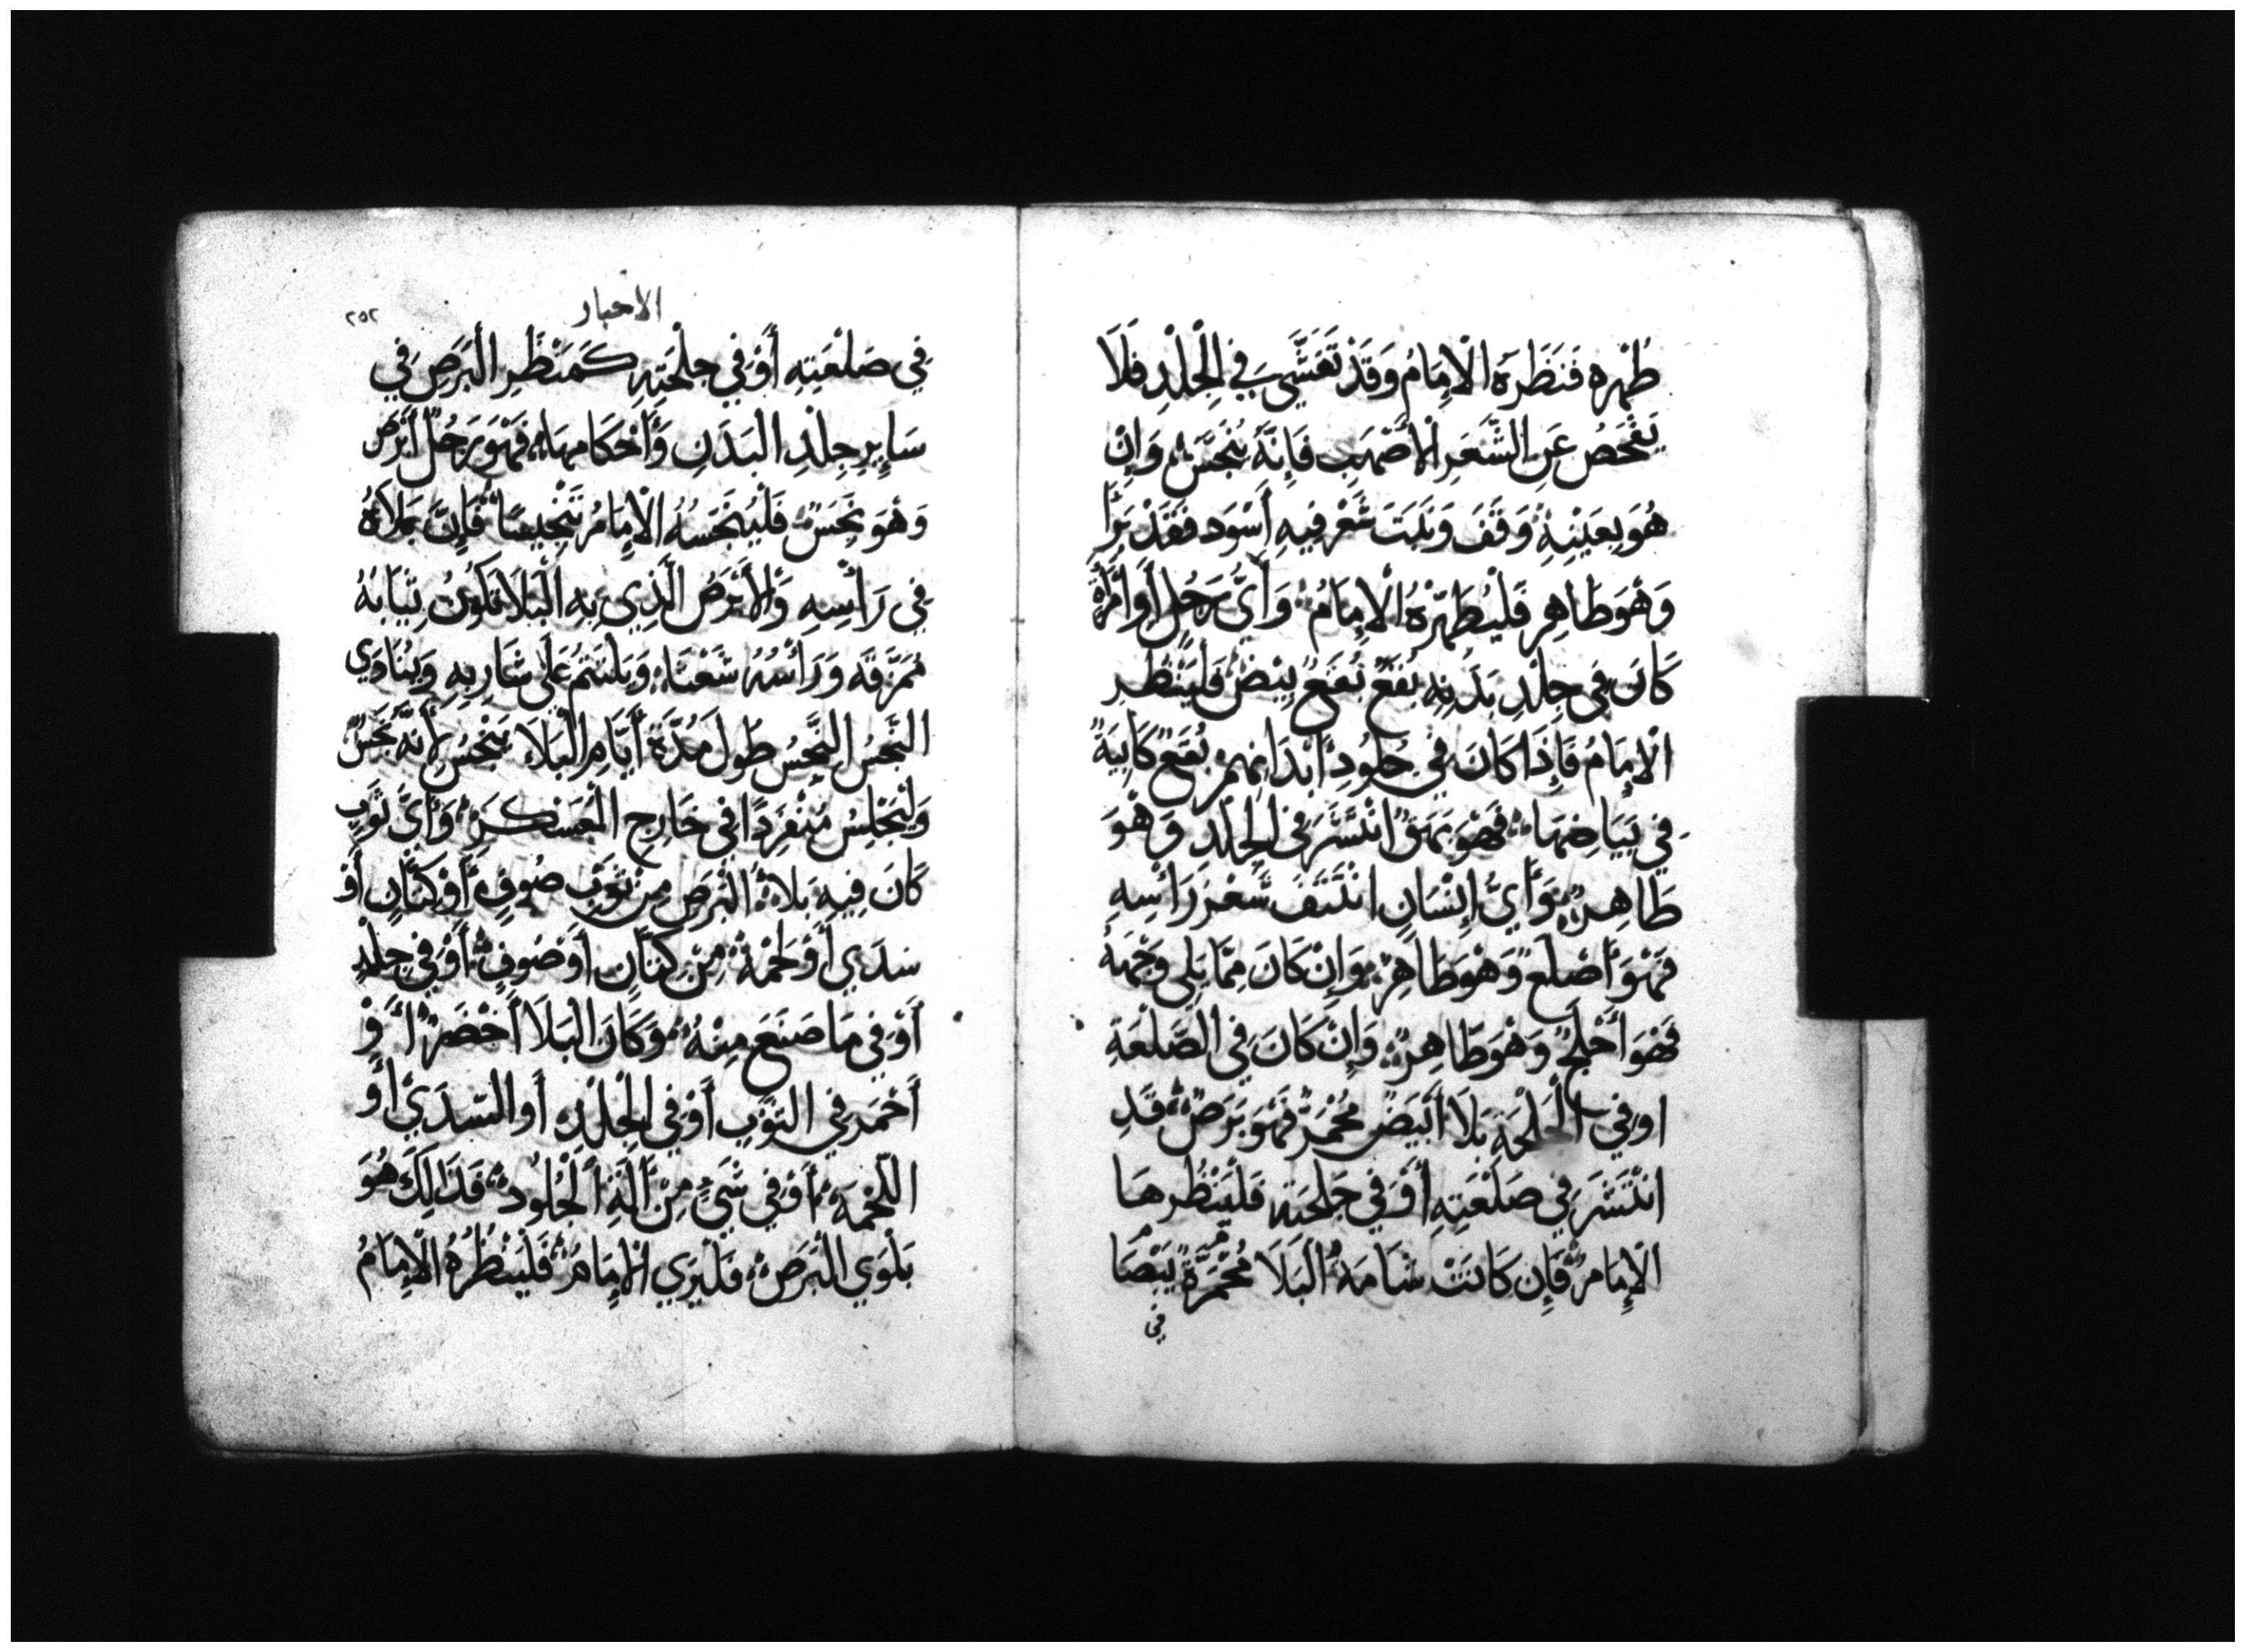 طُهْرِهِ فَنَظَرَهُ الْإِمَامُ وَقَدْ تَفَشَّي فِي الْجِلْدِ فَلَا
يَفْحَصُ عَنِ الشَّعَرِ الْأَصْهَبِ فَإِنَّهُ يُنَجَّسُ وَإِنْ
هُوَ بِعَيْنِهِ وَقَفَ وَنَبَتَ شَعْر فِيهِ أَسْوَد فَقَدْ بَرَأَ
وَهُوَ طَاهِر فَلْيُطَهِّرْهُ الْإِمَامُ وَأَيُّ رَجُلٍ أَوِ امْرَأَةٍ
كَانَ فِي جِلْدِ بَدَنِهِ بُقَعٌ بُقَعٌ بِيْضٌ فَلْيَنْظُر
الْإِمَامُ فَإِذَا كَانَ فِي جُلُودِ أَبْدَانِهِمْ بُقَعٌ كَابِيَةٌ
فِي بَيَاضِهَا فَهُوَ بَهَقٌ انْتَشَرَ فِي الْجِلْدِ وَهْوَ
طَاهِرٌ وَأَيُّ إِنْسَانٍ انْتَتَفَ شَعْرَ رَأْسِهِ
فَهْوَ أَصْلَعٌ وَهْوَ طَاهِرٌ وَإِنْ كَانَ مِمَّا يَلِي وَجْهَهُ
فَهْوَ أَجْلَحٌ وَهْوَ طَاهِرٌ وَإِنْ كَانَ فِي الصَّلْعَةِ
اوفِي الْجَلْحَةِ بَلَا أَبْيَضُ مُحْمَرٌّ فَهْوَ بَرَصٌ قَدِ
انْتَشَرَ فِي صَلْعَتِهِ أَوْ فِي جَلْحَتِهِ فَلْيَنْظُرهَا
الْإِمَامُ فَإِن كَانَتْ شَامَةُ الْبَلَا مُحْمَرَّةً بَيْضَا
فِي
الاحبار
٢٥٢
فِي صَلْعَتِهِ أَوْ فِي جَلْحَتِهِ كَمَنْظَرِ الْبَرَصِ فِي
سَايِرِ جِلْدِ الْبَدَنِ وَأَحْكَامِهَا فَهْوَ رَجُلٌ أَبْرَصُ
وَهُوَ نَجَسٌ فَلْيُنَجِّسْهُ الْإِمَامُ تَنْجِيسًا فَإِنَّ بَلَاهُ
فِي رَأْسِهِ وَالْأَبْرَصُ الَّذِي بِهِ الْبَلَا تَكُونُ ثِيَابُهُ
مُمَزَّقَه وَرَأْسُهُ شَعْثَا وَيَلْتَثِمُ عَلَى شَارِبِهِ وَيُنَادِي
النَّجَسُ النَّجَسُ طُولَ مُدَّةِ أَيَّامِ الْبَلَا يَنْجُسُ لِأَنَّهُ نَجَسٌ
وَلْيَجْلِسْ مُنْفَرِدًا فِي خَارِجِ الْعَسْكَرِ وَأَيُّ ثَوْبٍ
كَانَ فِيهِ بَلَاءُ الْبَرَصِ مِنْ ثَوْبِ صُوفٍ أَوْ كَتَّانٍ أَوْ
سَدَي أَوْ لُحْمَة مِنْ كَتَّانٍ أَوْ صُوفٍ أَوْ فِي جِلْدٍ
أَوْ فِي مَا صَنَعَ مِنْهُ وَكَانَ الْبَلَا أَخْضَرٌ أَوْ
أَحْمَر فِي الثَّوْبِ أَوْ فِي الْجِلْدِ أَو السَّدَيْ أَو
اللُّحْمَةِ أَوْ فِي شَيْءٍ مِنْ آلَةِ الْجُلُودِ فَذَالِكَ هُوَ
بَلْوَي الْبَرَصِ فَلْيَرَي الْإِمَامُ فَلْيَنْظُرُهُ الْإِمَامُ